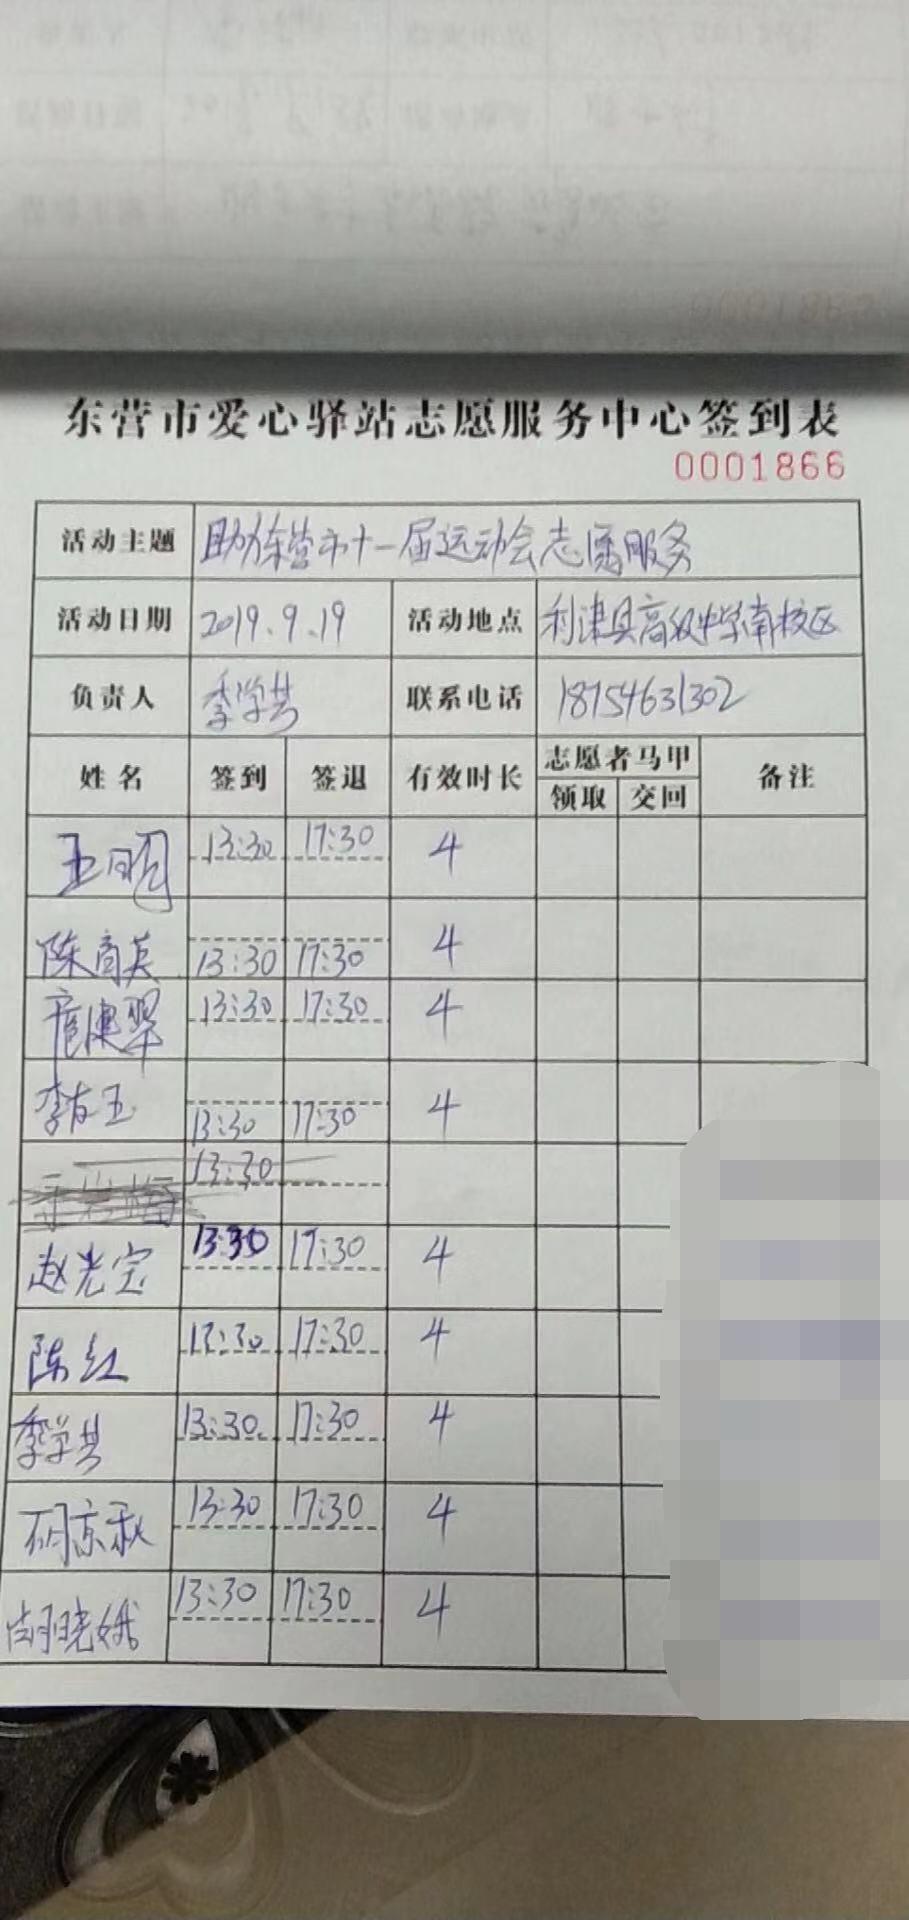 东营市爱心驿站志愿服务中心签到表
0001866
活动主题 助力东营市十一届运动会志愿服务
活动日期 2019.9.19 活动地点 利津县高级中学南校区
负责人 季学共 联系电话 18754631302
姓名 签到 签退 有效时长 志愿者马甲 备注
领取 交回
王明 13:30 17:30 4
陈商英 13:30 17:30 4
13:30 17:30 4
李友玉 13:30 17:30 4
13:30
赵光宝 13:30 17:30 4
陈红 13:30 17:30 4
季学共 13:30 17:30 4
13:30 17:30 4
胡晓娥 13:30 17:30 4